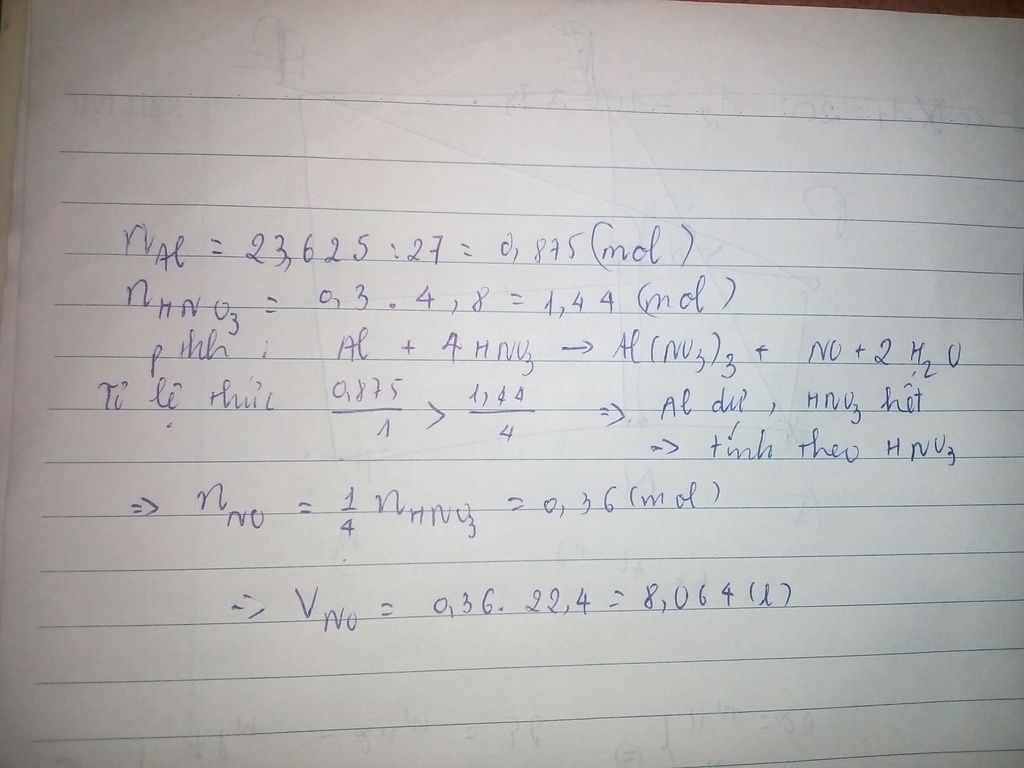 n_Al = 23,625 : 27 = 0,875 (mol)
n_HNO3 = 0,3 . 4,8 = 1,44 (mol)
pthh : Al + 4 HNO3 → Al(NO3)3 + NO + 2 H2O
Tỉ lệ thức 0,875/1 > 1,44/4 => Al dư, HNO3 hết
=> tính theo HNO3
=> n_NO = 1/4 n_HNO3 = 0,36 (mol)
=> V_NO = 0,36. 22,4 = 8,064 (l)